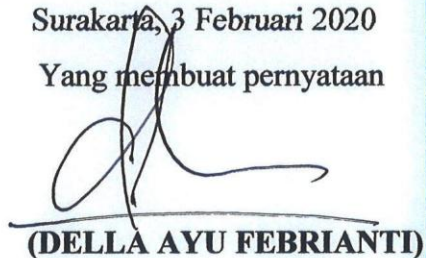 Surakarta, 3 Februari 2020
Yang membuat pernyataan
(DELLA AYU FEBRIANTI)